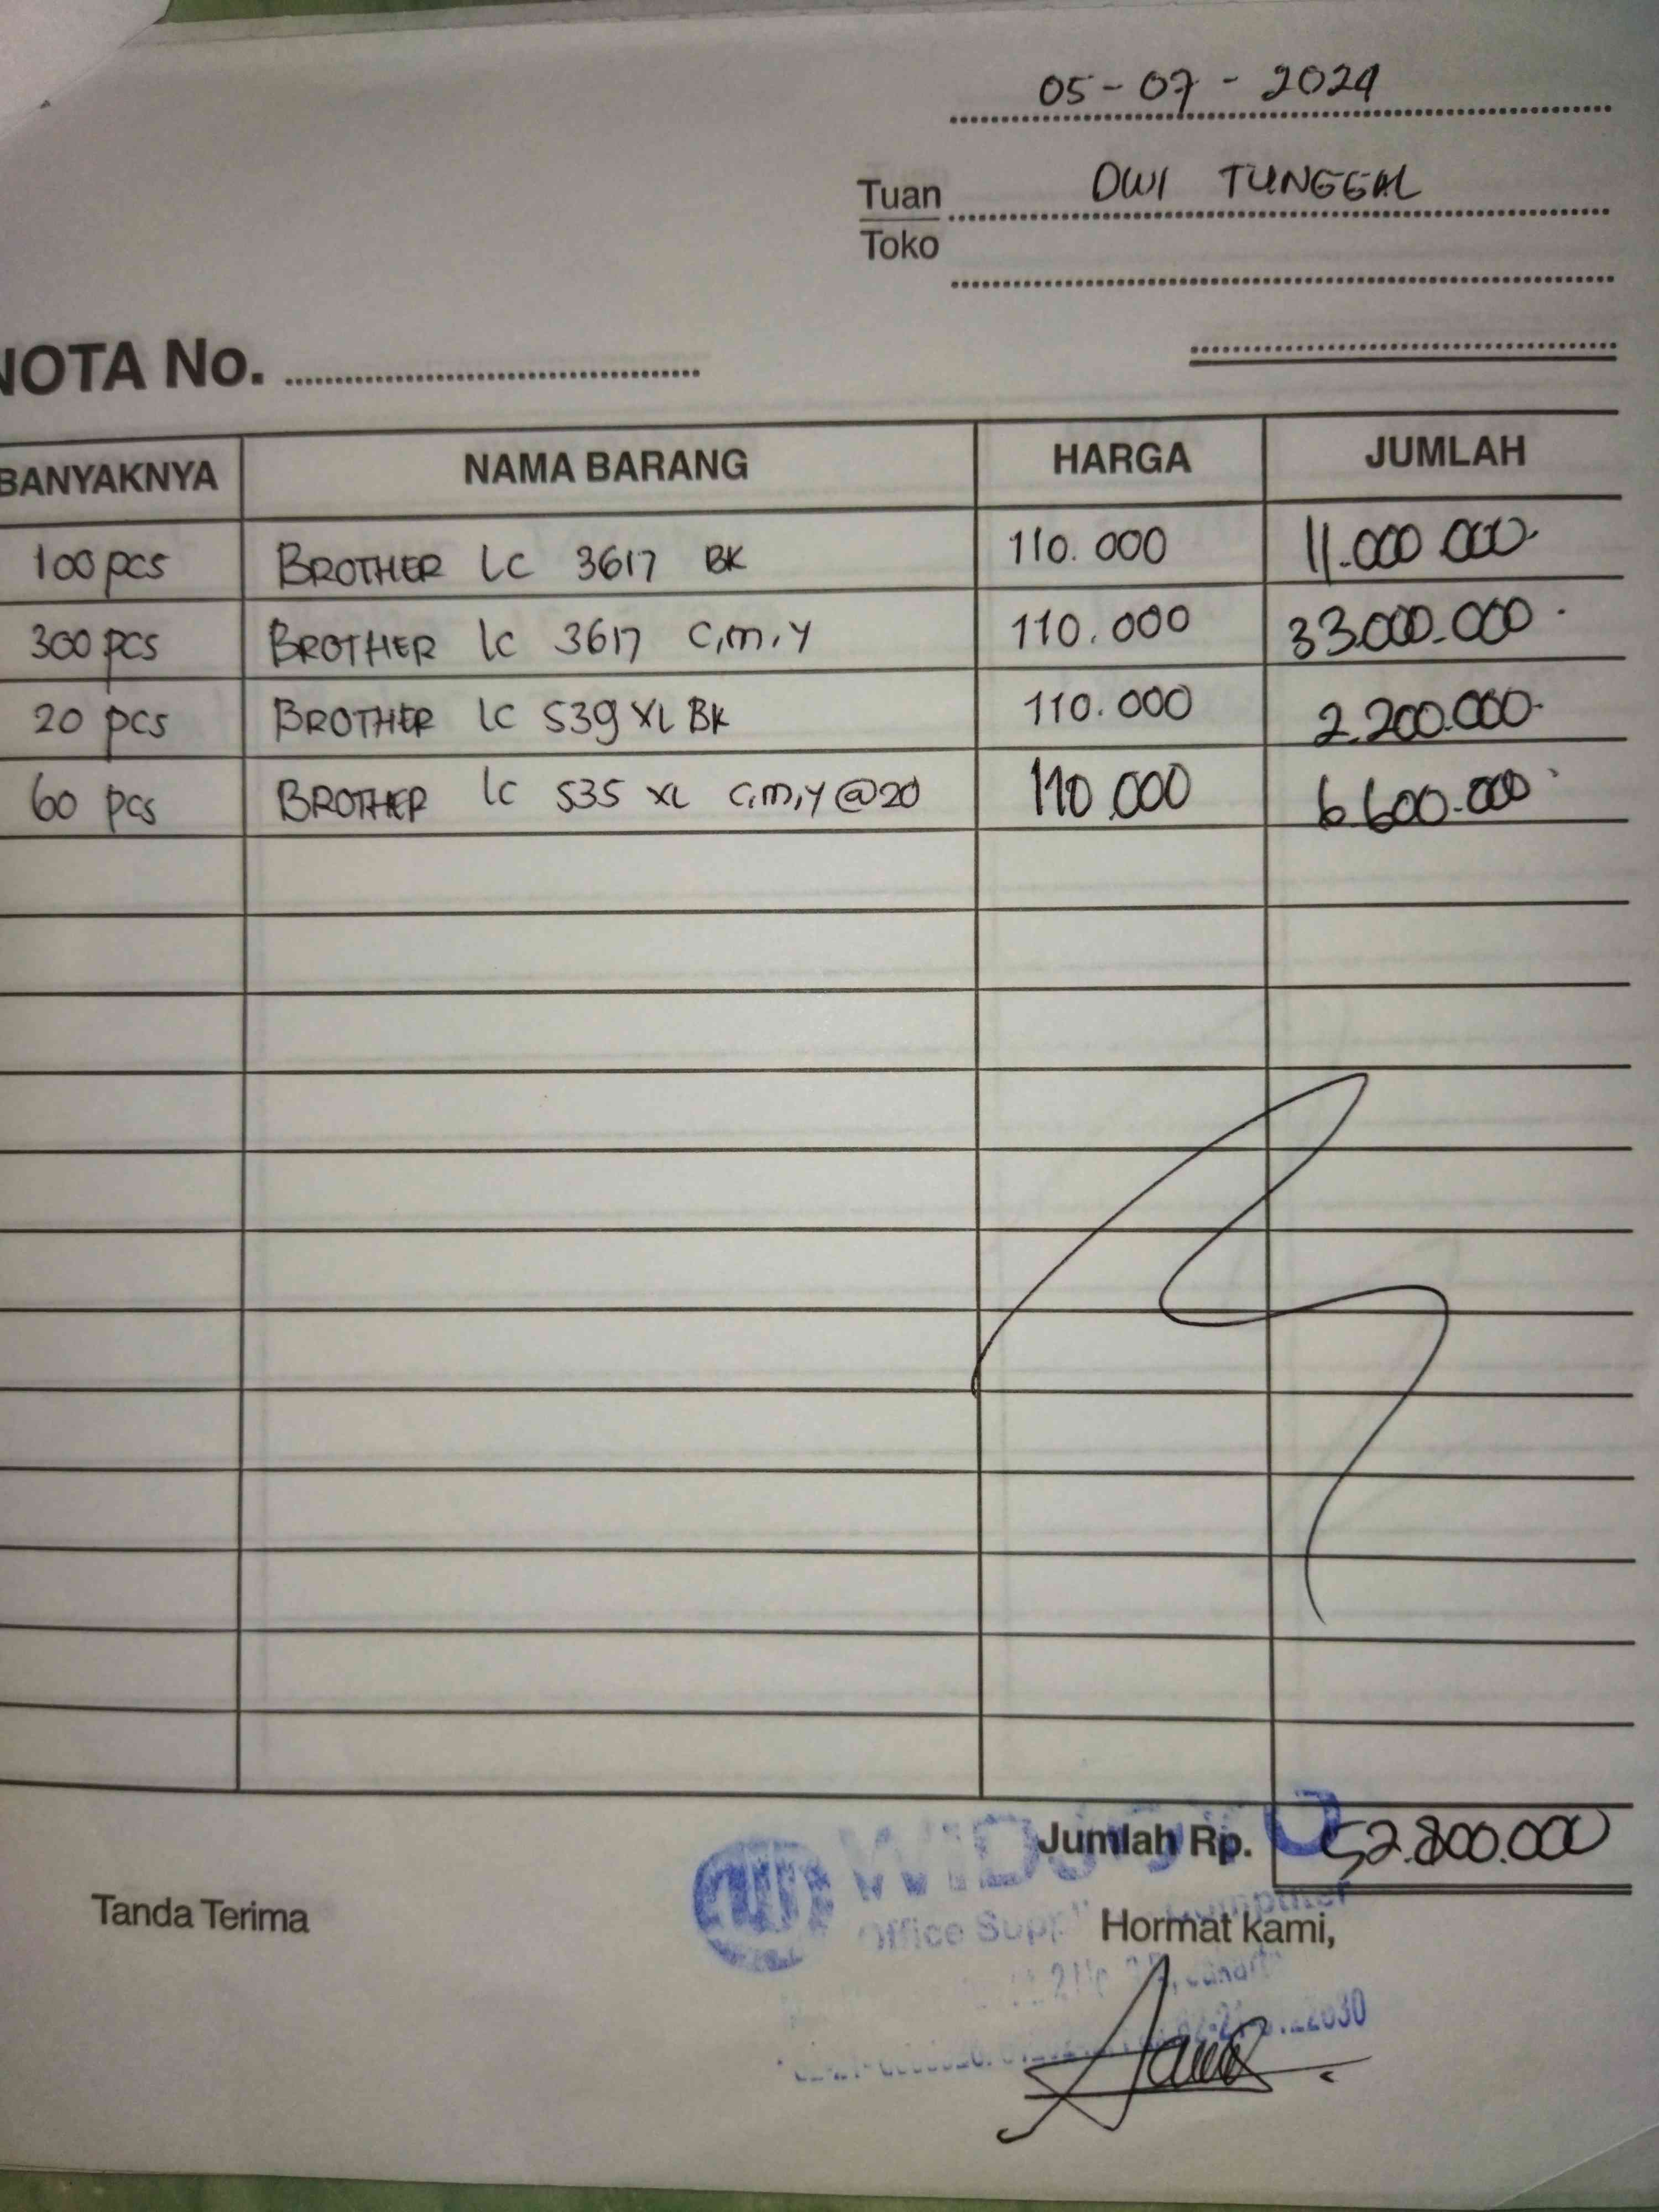 05-07-2024
Tuan DWI TUNGGAL
Toko
NOTA No.
BANYAKNYA NAMA BARANG HARGA JUMLAH
100 pcs BROTHER LC 3617 BK 110.000 11.000.000
300 pcs BROTHER LC 3617 C,M,Y 110.000 33.000.000
20 pcs BROTHER LC 539 XL BK 110.000 2.200.000
60 pcs BROTHER LC 535 XL C,M,Y @20 110.000 6.600.000
Jumlah Rp. 52.800.000
Office Computer
Tanda Terima Hormat kami,